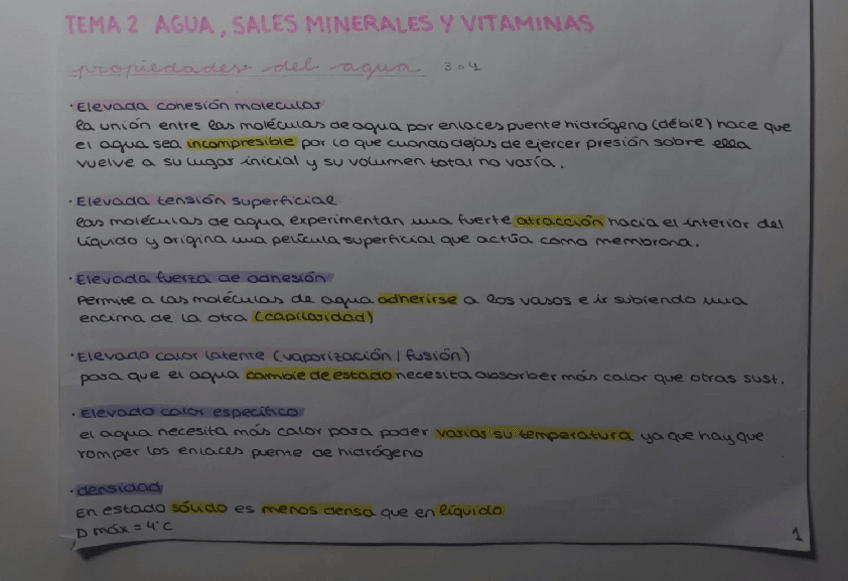 TEMA 2 AGUA, SALES MINERALES Y VITAMINAS
propiedades del agua 3 o 4
· Elevada cohesión molecular
la unión entre las moléculas de agua por enlaces puente hidrógeno (débil) hace que
el agua sea incompresible por lo que cuando dejas de ejercer presión sobre ella
vuelve a su lugar inicial y su volumen total no varía.
· Elevada tensión superficial
las moléculas de agua experimentan una fuerte atracción hacia el interior del
líquido y origina una película superficial que actúa como membrana.
· Elevada fuerza de adhesión
Permite a las moléculas de agua adherirse a los vasos e ir subiendo una
encima de la otra (capilaridad)
· Elevado calor latente (vaporización / fusión)
para que el agua cambie de estado necesita absorber más calor que otras sust.
· Elevado calor específico
el agua necesita más calor para poder variar su temperatura ya que hay que
romper los enlaces puente de hidrógeno
· densidad
En estado sólido es menos densa que en líquido
D máx = 4°C
1